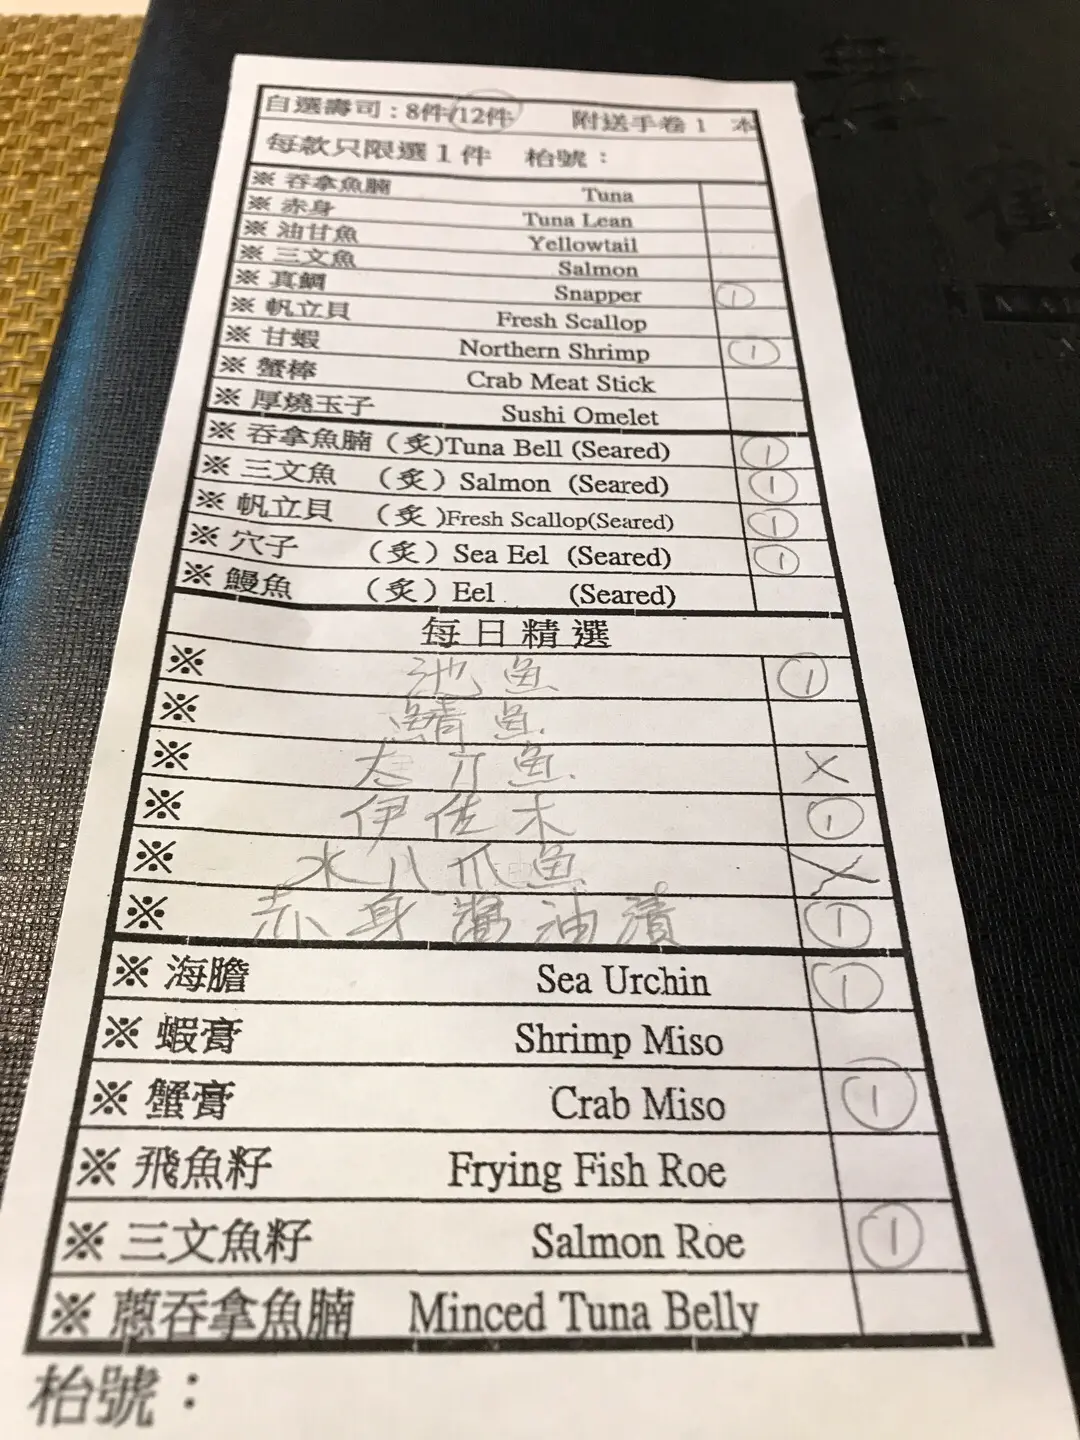 自選壽司：8件/12件 附送手卷 1 本
每款只限選 1 件 枱號：
※ 吞拿魚腩 Tuna
※ 赤身 Tuna Lean
※ 油甘魚 Yellowtail
※ 三文魚 Salmon
※ 真鯛 Snapper 1
※ 帆立貝 Fresh Scallop
※ 甘蝦 Northern Shrimp 1
※ 蟹棒 Crab Meat Stick
※ 厚燒玉子 Sushi Omelet
※ 吞拿魚腩（炙)Tuna Bell (Seared) 1
※ 三文魚 （炙）Salmon (Seared) 1
※ 帆立貝 （炙 )Fresh Scallop(Seared) 1
※ 穴子 （炙）Sea Eel (Seared) 1
※ 鰻魚 （炙）Eel (Seared)
每日精選
※ 池魚 1
※ 鯖魚
※ 魚 X
※ 伊佐木 1
※ 水八爪魚 X
※ 赤身醬油漬 1
※ 海膽 Sea Urchin 1
※ 蝦膏 Shrimp Miso
※ 蟹膏 Crab Miso 1
※ 飛魚籽 Frying Fish Roe
※ 三文魚籽 Salmon Roe 1
※ 蔥吞拿魚腩 Minced Tuna Belly
枱號：